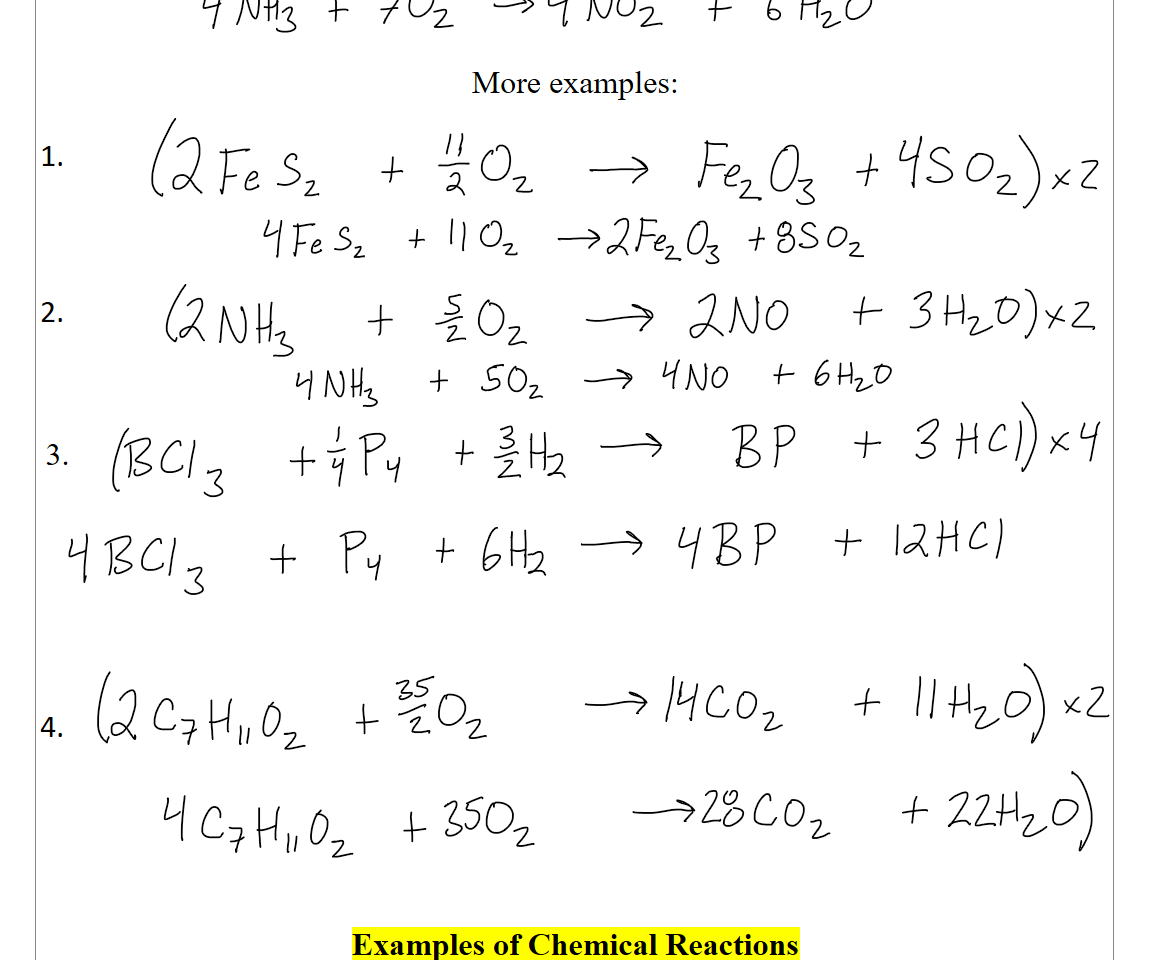 4 NH₃ + 7O₂ → 4 NO₂ + 6 H₂O
More examples:
1. (2 FeS₂ + 11/2 O₂ → Fe₂O₃ + 4SO₂) x2
4 FeS₂ + 11 O₂ → 2Fe₂O₃ + 8SO₂
2. (2 NH₃ + 5/2 O₂ → 2NO + 3 H₂O) x2
4 NH₃ + 5O₂ → 4NO + 6 H₂O
3. (BCl₃ + 1/4 P₄ + 3/2 H₂ → BP + 3 HCl) x4
4 BCl₃ + P₄ + 6H₂ → 4BP + 12HCl
4. (2 C₇H₁₁O₂ + 35/2 O₂ → 14CO₂ + 11 H₂O) x2
4 C₇H₁₁O₂ + 35O₂ → 28CO₂ + 22H₂O)
Examples of Chemical Reactions